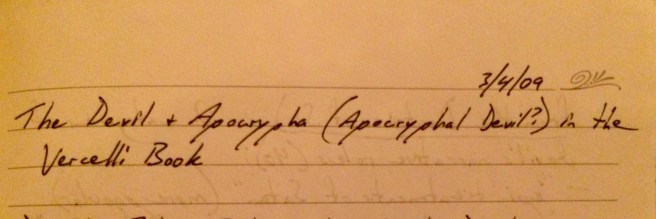 3/4/09
The Devil + Apocrypha (Apocryphal Devil?) in the
Vercelli Book